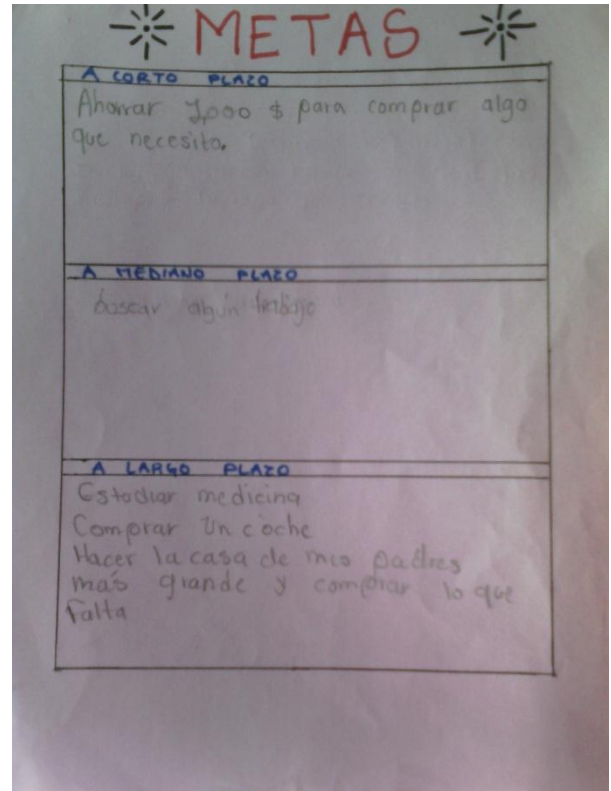 METAS
A CORTO PLAZO
Ahorrar 1,000 $ para comprar algo
que necesito.
A MEDIANO PLAZO
buscar algún trabajo
A LARGO PLAZO
Estudiar medicina
Comprar un coche
Hacer la casa de mis padres
más grande y comprar lo que
falta